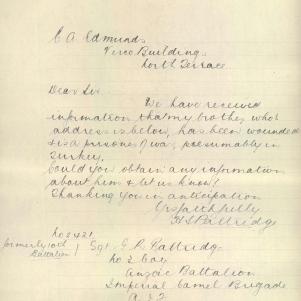 C A Edmunds
Verco Building
North Terrace
Dear Sir
We have received
information that my brother, who's
address is below, has been wounded
& is a prisoner of war, presumably in
Turkey.
Could you obtain any information
about him & let us know?
Thanking you in anticipation
Yrs faithfully
H S Pattridge
No 2421
formerly 10th
Battalion
Sgt G. R. Pattridge
No 2 Coy
Anzac Battalion
Imperial Camel Brigade
A.I.F